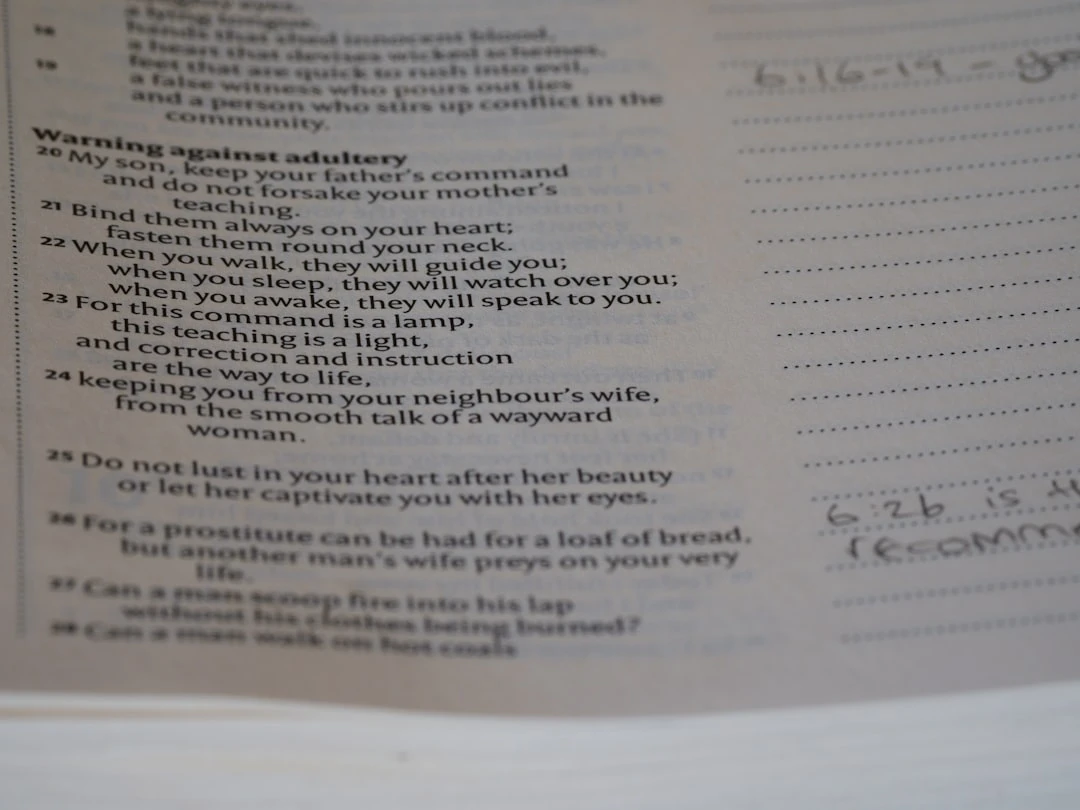 a lying tongue,
18 hands that shed innocent blood,
a heart that devises wicked schemes,
19 feet that are quick to rush into evil,
a false witness who pours out lies
and a person who stirs up conflict in the
community.
Warning against adultery
20 My son, keep your father's command
and do not forsake your mother's
teaching.
21 Bind them always on your heart;
fasten them round your neck.
22 When you walk, they will guide you;
when you sleep, they will watch over you;
when you awake, they will speak to you.
23 For this command is a lamp,
this teaching is a light,
and correction and instruction
are the way to life,
24 keeping you from your neighbour's wife,
from the smooth talk of a wayward
woman.
25 Do not lust in your heart after her beauty
or let her captivate you with her eyes.
26 For a prostitute can be had for a loaf of bread,
but another man's wife preys on your very
life.
27 Can a man scoop fire into his lap
without his clothes being burned?
28 Can a man walk on hot coals
6:16-19 -
6:26 is